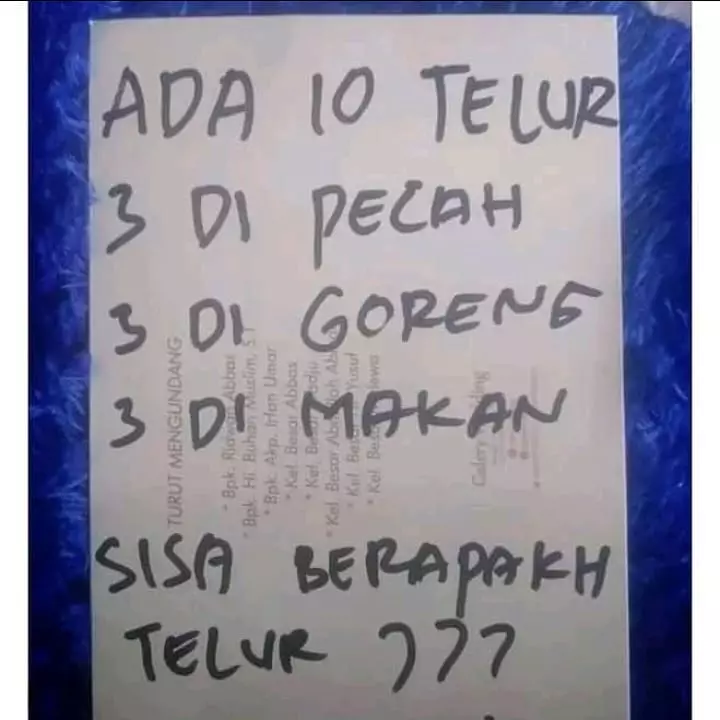 ADA 10 TELUR
3 DI PECAH
3 DI GORENG
3 DI MAKAN
SISA BERAPAKH
TELUR ???
TURUT MENGUNDANG
* Bpk. Ridwan Abbas
* Bpk. Hi. Buhari Muslim, S.T
* Bpk. Akp. Irfan Umar
* Kel. Besar Abbas
* Kel. Besar
* Kel. Besar Abdullah
* Kel. Yusuf
* Kel.
Galery